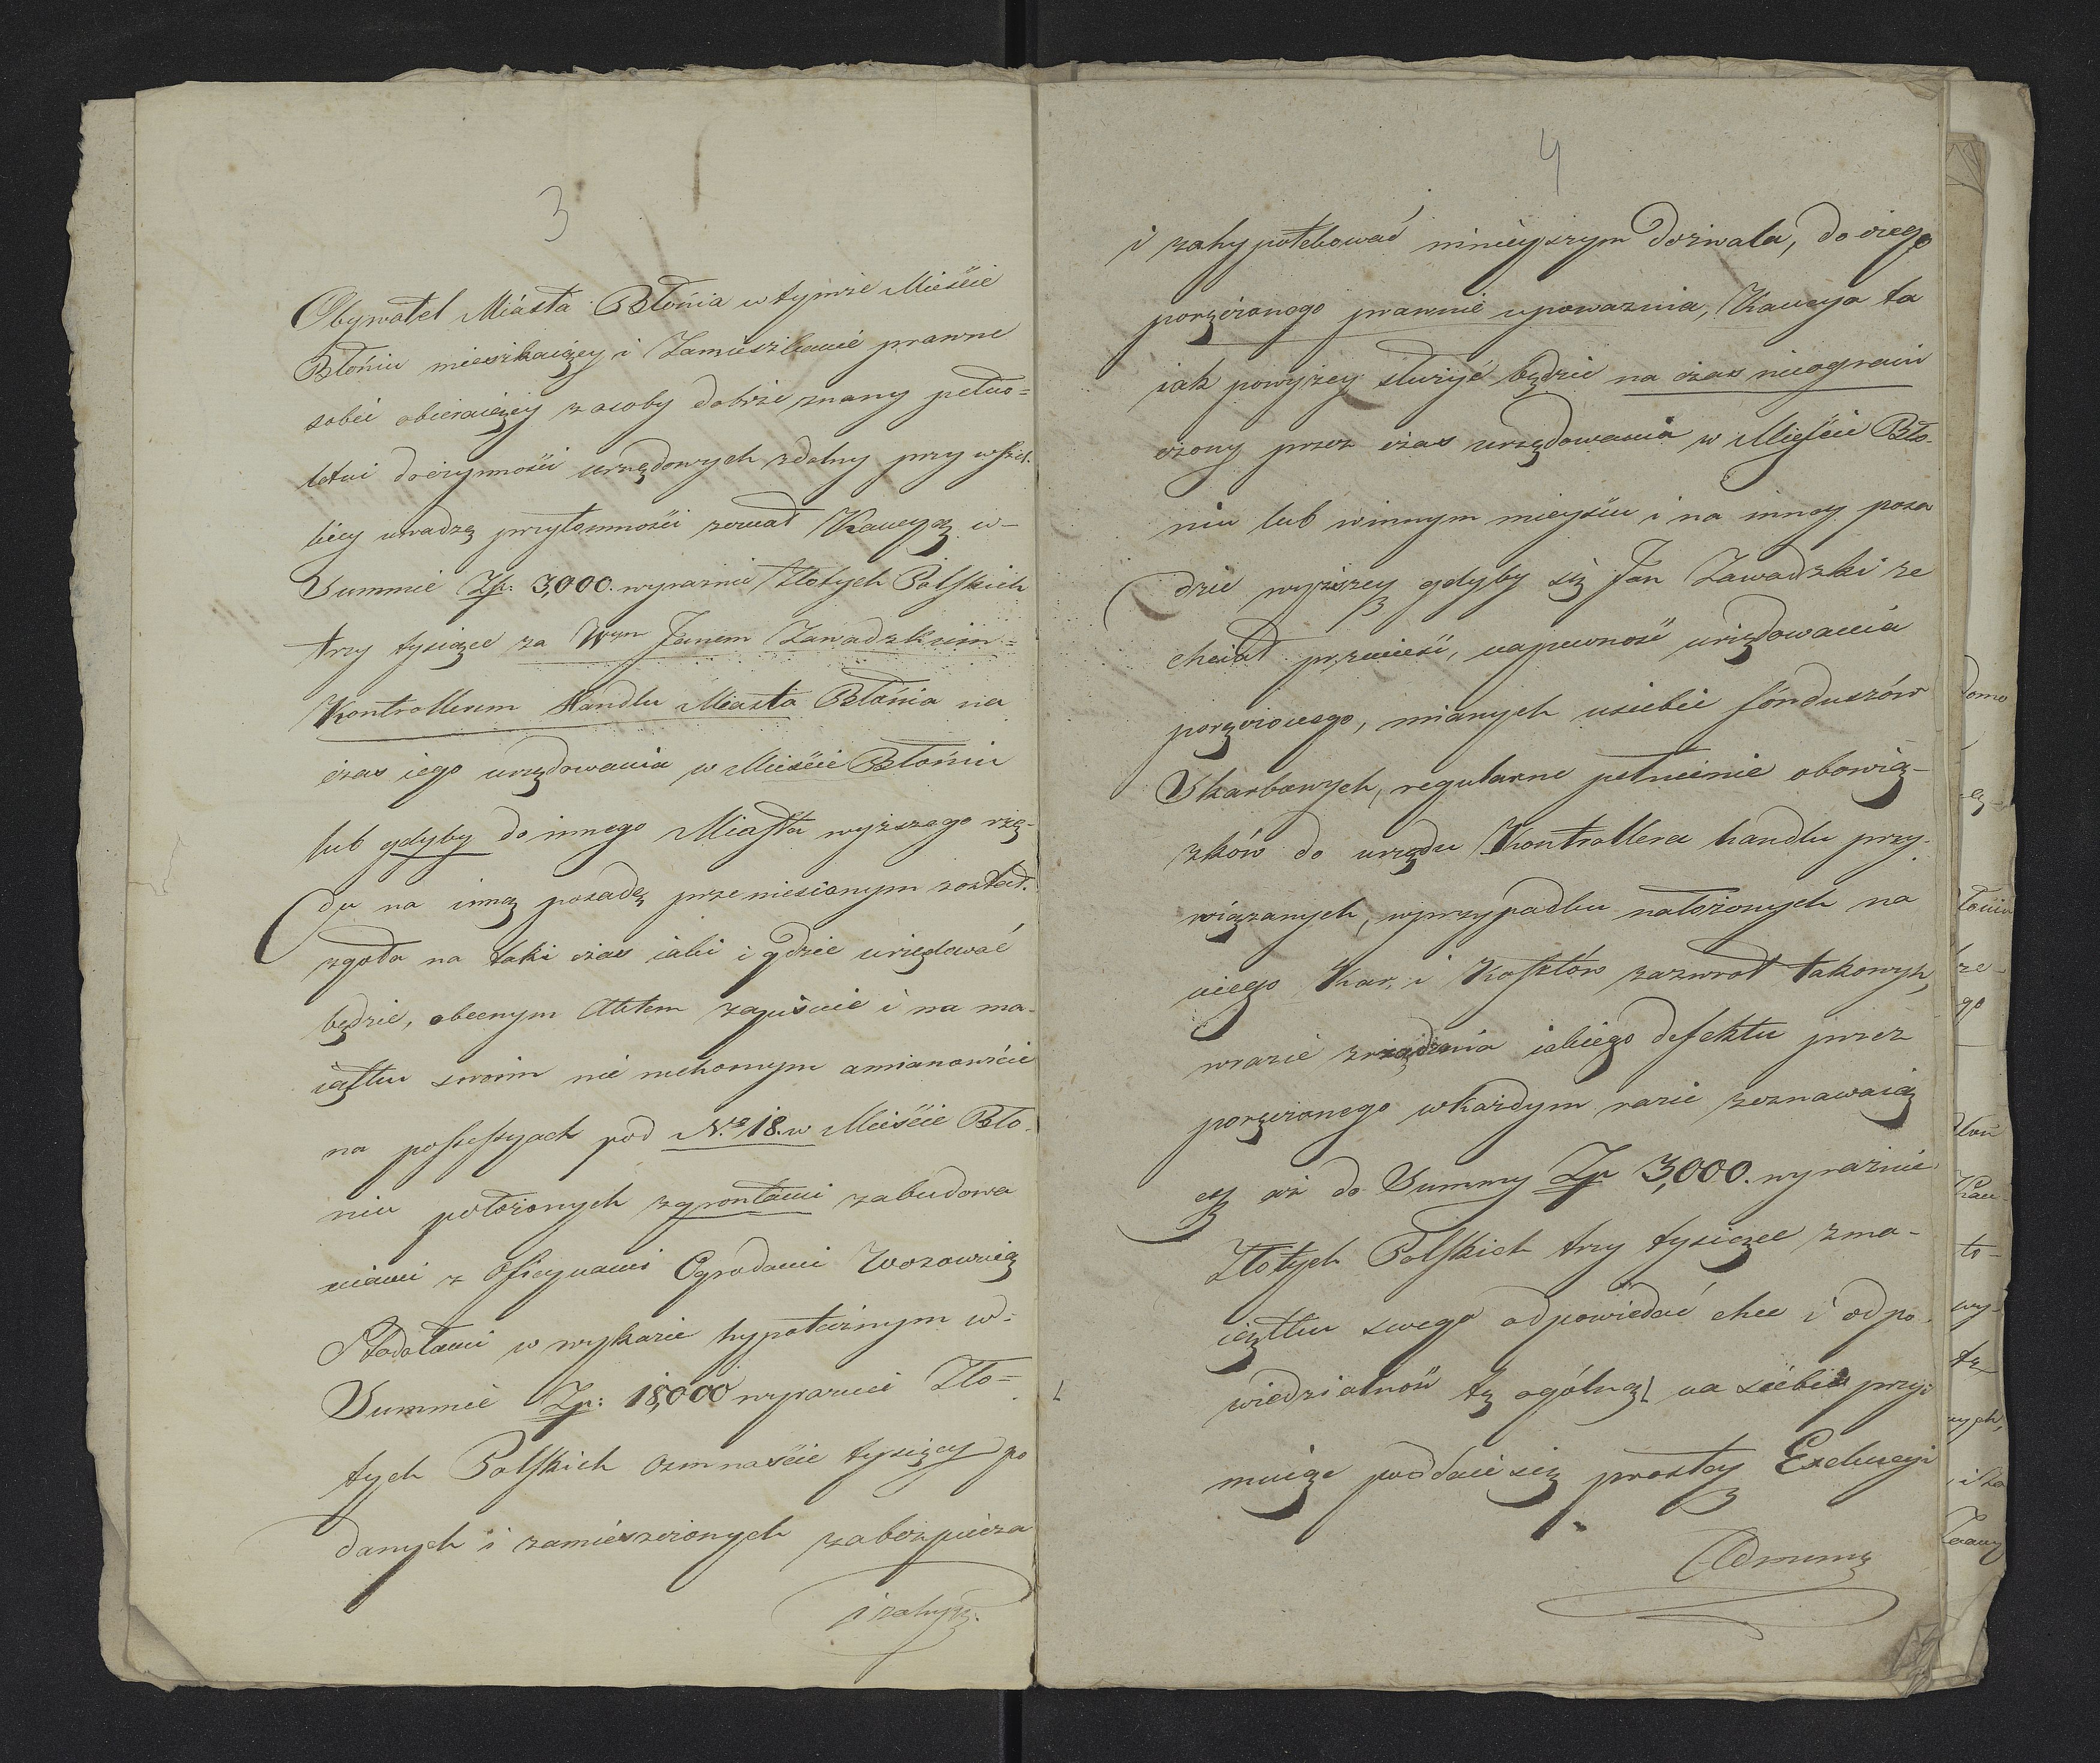 3
Obywatel Miasta Błonia w tymże Mieście
Błoniu mieszkaiący i Zamieszkanie prawne
sobie obieraiący z osoby dobrze znany pełno=
letni do czynności urzędowych zdolny przy wszel-
kiey uwadze przytomności zeznał Kaucyą w-
Summie Zp: 3,000. wyraznie Złotych Polskich
trzy tysiące za Wym Janem Zawadzkim=
Kontrollerem Handlu Miasta Błonia na
czas iego urzędowania w Mieście Błoniu
lub gdyby do innego Miasta wyższego rzę-
du na inną posadę przeniesionym został.
zgoła na taki czas iaki i gdzie urzędować
będzie, obecnym Aktem zapisuie i na ma-
iątku swoim nie ruchomym a mianowicie
na possessyach pod No 18. w Mieście Bło-
niu położonych z gruntami zabudowa
niami z Oficynami Ogrodami Wozownią
Stodołami w wykazie hypotecznym w-
Summie Zp: 18,000 wyraznie Zło=
tych Polskich Osmnaście tysięcy po
danych i zamieszczonych zabezpiecza
i zahyp.
4
i zahypotekować ninieyszym dozwala, do czego
poręczonego prawnie upowaznia, Kaucya ta
iak powyżey służyć będzie na czas nieograni
czony przez czas urzędowania w Mieście Bło-
niu lub w innym mieyscu i na inney posa
dzie wyższey gdyby się Jan Zawadzki ze
chciał przenieść, na pewność urzędowania
poręczonego, mianych u siebie fonduszów
Skarbowych, regularne pełnienie obowią-
zków do urzędu Kontrollera handlu przy-
wiązanych, w przypadku nałożonych na
niego Kar, i Kosztów za zwrot takowych,
w razie zrządzenia iakiego defektu przez
poręczonego w każdym razie zeznawaią
cy aż do Summy Zp 3,000. wyraznie
Złotych Polskich trzy tysiące z ma-
iątku swego odpowiedać chce i odpo-
wiedzialność tę ogólną na siebie przyi
muiąc poddaie się prostey Exekucyi